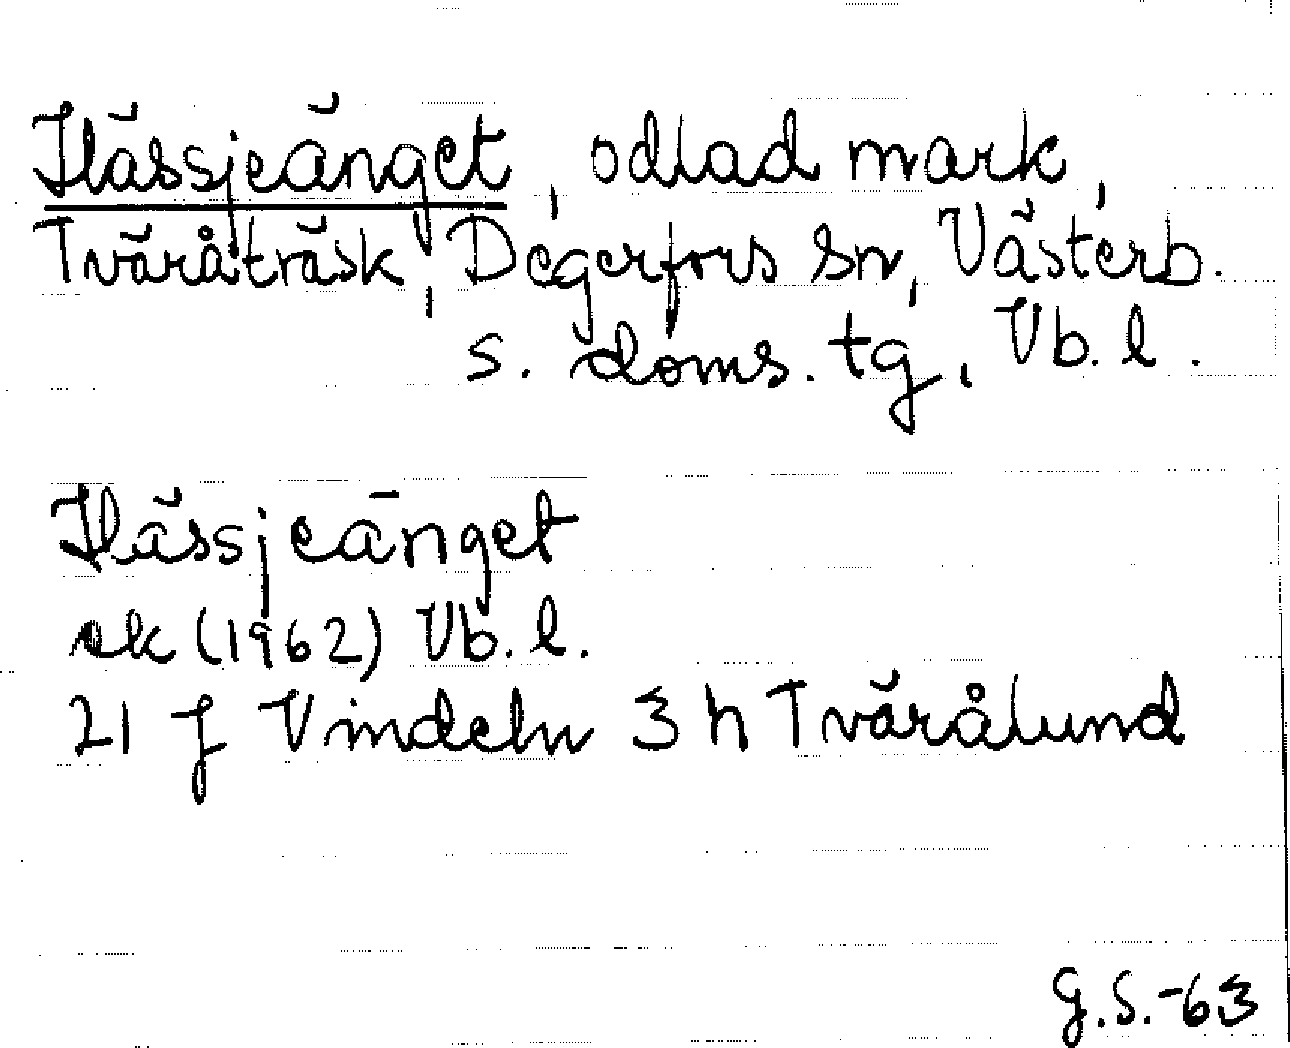 Hässjeänget, odlad mark,
Tväråträsk, Degerfors sn, Västerb.
s. doms. tg, Vb. l.
Hässjeänget
ek (1962) Vb. l.
21 J Vindeln 3 h Tvärålund
G.S.-63